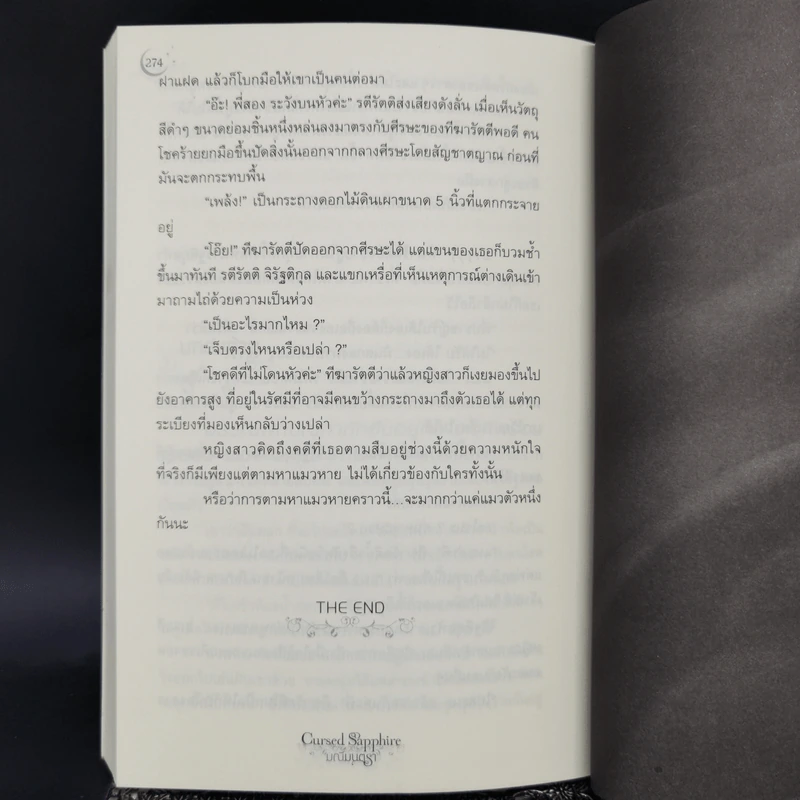 274
ฝาแฝด แล้วก็โบกมือให้เขาเป็นคนต่อมา
“อ๊ะ! พี่สอง ระวังบนหัวค่ะ” รตีรัตติส่งเสียงดังลั่น เมื่อเห็นวัตถุ
สีดำๆ ขนาดย่อมชิ้นหนึ่งหล่นลงมาตรงกับศีรษะของทีฆารัตตีพอดี คน
โชคร้ายยกมือขึ้นปัดสิ่งนั้นออกจากกลางศีรษะโดยสัญชาตญาณ ก่อนที่
มันจะตกกระทบพื้น
“เพล้ง!” เป็นกระถางดอกไม้ดินเผาขนาด 5 นิ้วที่แตกกระจาย
อยู่
“โอ๊ย!” ทีฆารัตตีปัดออกจากศีรษะได้ แต่แขนของเธอก็บวมช้ำ
ขึ้นมาทันที รตีรัตติ จิรัฐติกุล และแขกเหรื่อที่เห็นเหตุการณ์ต่างเดินเข้า
มาถามไถ่ด้วยความเป็นห่วง
“เป็นอะไรมากไหม ?”
“เจ็บตรงไหนหรือเปล่า ?”
“โชคดีที่ไม่โดนหัวค่ะ” ทีฆารัตตีว่าแล้วหญิงสาวก็เงยมองขึ้นไป
ยังอาคารสูง ที่อยู่ในรัศมีที่อาจมีคนขว้างกระถางมาถึงตัวเธอได้ แต่ทุก
ระเบียงที่มองเห็นกลับว่างเปล่า
หญิงสาวคิดถึงคดีที่เธอตามสืบอยู่ช่วงนี้ด้วยความหนักใจ
ที่จริงก็มีเพียงแต่ตามหาแมวหาย ไม่ได้เกี่ยวข้องกับใครทั้งนั้น
หรือว่าการตามหาแมวหายคราวนี้...จะมากกว่าแค่แมวตัวหนึ่ง
กันนะ
THE END
Cursed Sapphire
มณีมนตรา